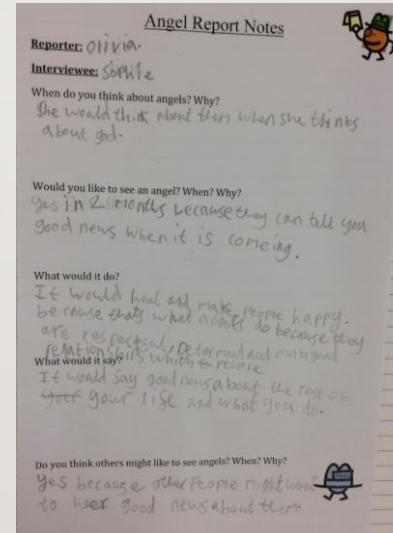 Angel Report Notes
Reporter: Olivia.
Interviewee: Sophie
When do you think about angels? Why?
She would think about them when she thinks
about god.
Would you like to see an angel? When? Why?
yes in 2 months because they can tell you
good news when it is comeing.
What would it do?
It would heal and make people happy.
because thats what angels do because they
are respectful, Determind and make good
relationships which people
What would it say?
It would say good news about the rest of
your your life and what you do.
Do you think others might like to see angels? When? Why?
yes because other People might want
to heer good news about them.